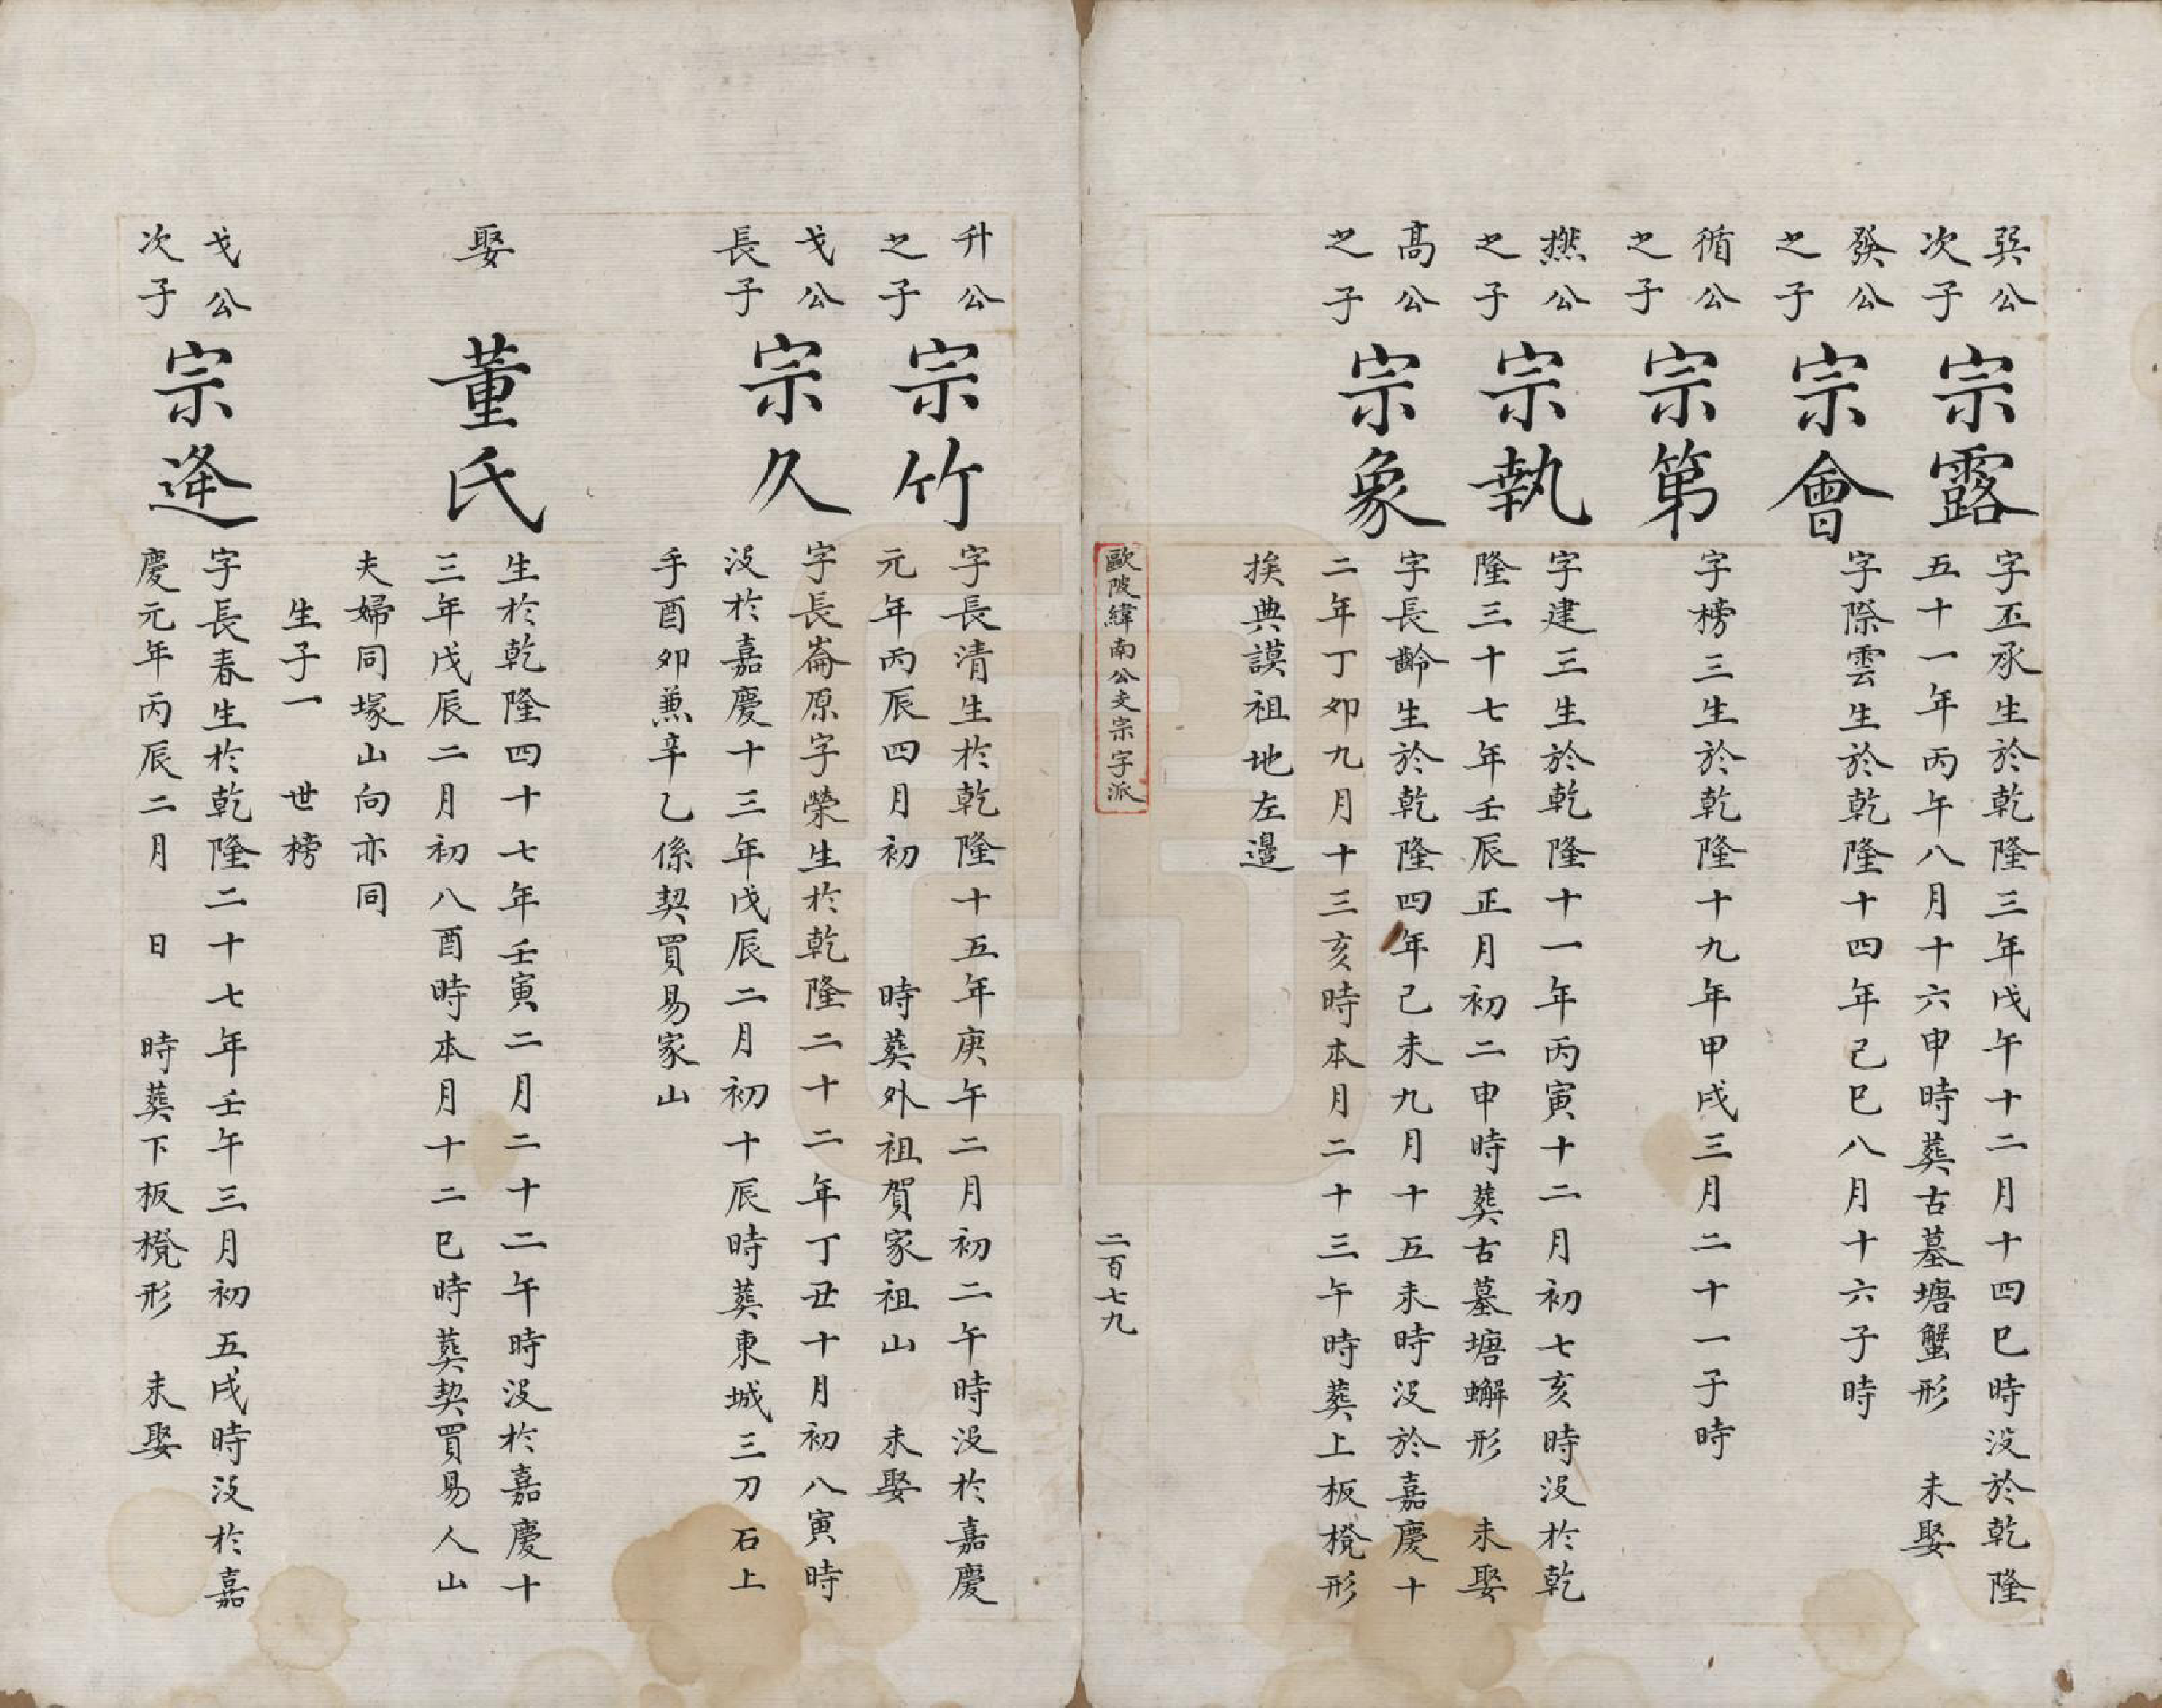 巽公
次子
宗露
字丕承生於乾隆三年戊午十二月十四巳時没於乾隆
五十一年丙午八月十六申時葬古墓塘蟹形 未娶
發公
之子
宗會
字際雲生於乾隆十四年己巳八月十六子時
循公
之子
宗第
字榜三生於乾隆十九年甲戌三月二十一子時
撚公
之子
宗執
字建三生於乾隆十一年丙寅十二月初七亥時没於乾
隆三十七年壬辰正月初二申時葬古墓塘蠏形 未娶
高公
之子
宗象
字長齡生於乾隆四年己未九月十五未時没於嘉慶十
二年丁卯九月十三亥時本月二十三午時葬上板櫈形
挨典謨祖地左邊
歐陂緯南公支宗字派
二百七九
升公
之子
宗竹
字長清生於乾隆十五年庚午二月初二午時没於嘉慶
元年丙辰四月初 時葬外祖賀家祖山 未娶
戈公
長子
宗久
字長崙原字榮生於乾隆二十二年丁丑十月初八寅時
没於嘉慶十三年戊辰二月初十辰時葬東城三刀石上
手酉卯兼辛乙係契買易家山
娶
董氏
生於乾隆四十七年壬寅二月二十二午時没於嘉慶十
三年戊辰二月初八酉時本月十二巳時葬契買易人山
夫婦同塚山向亦同
生子一 世榜
戈公
次子
宗逄
字長春生於乾隆二十七年壬午三月初五戌時没於嘉
慶元年丙辰二月 日 時葬下板櫈形 未娶